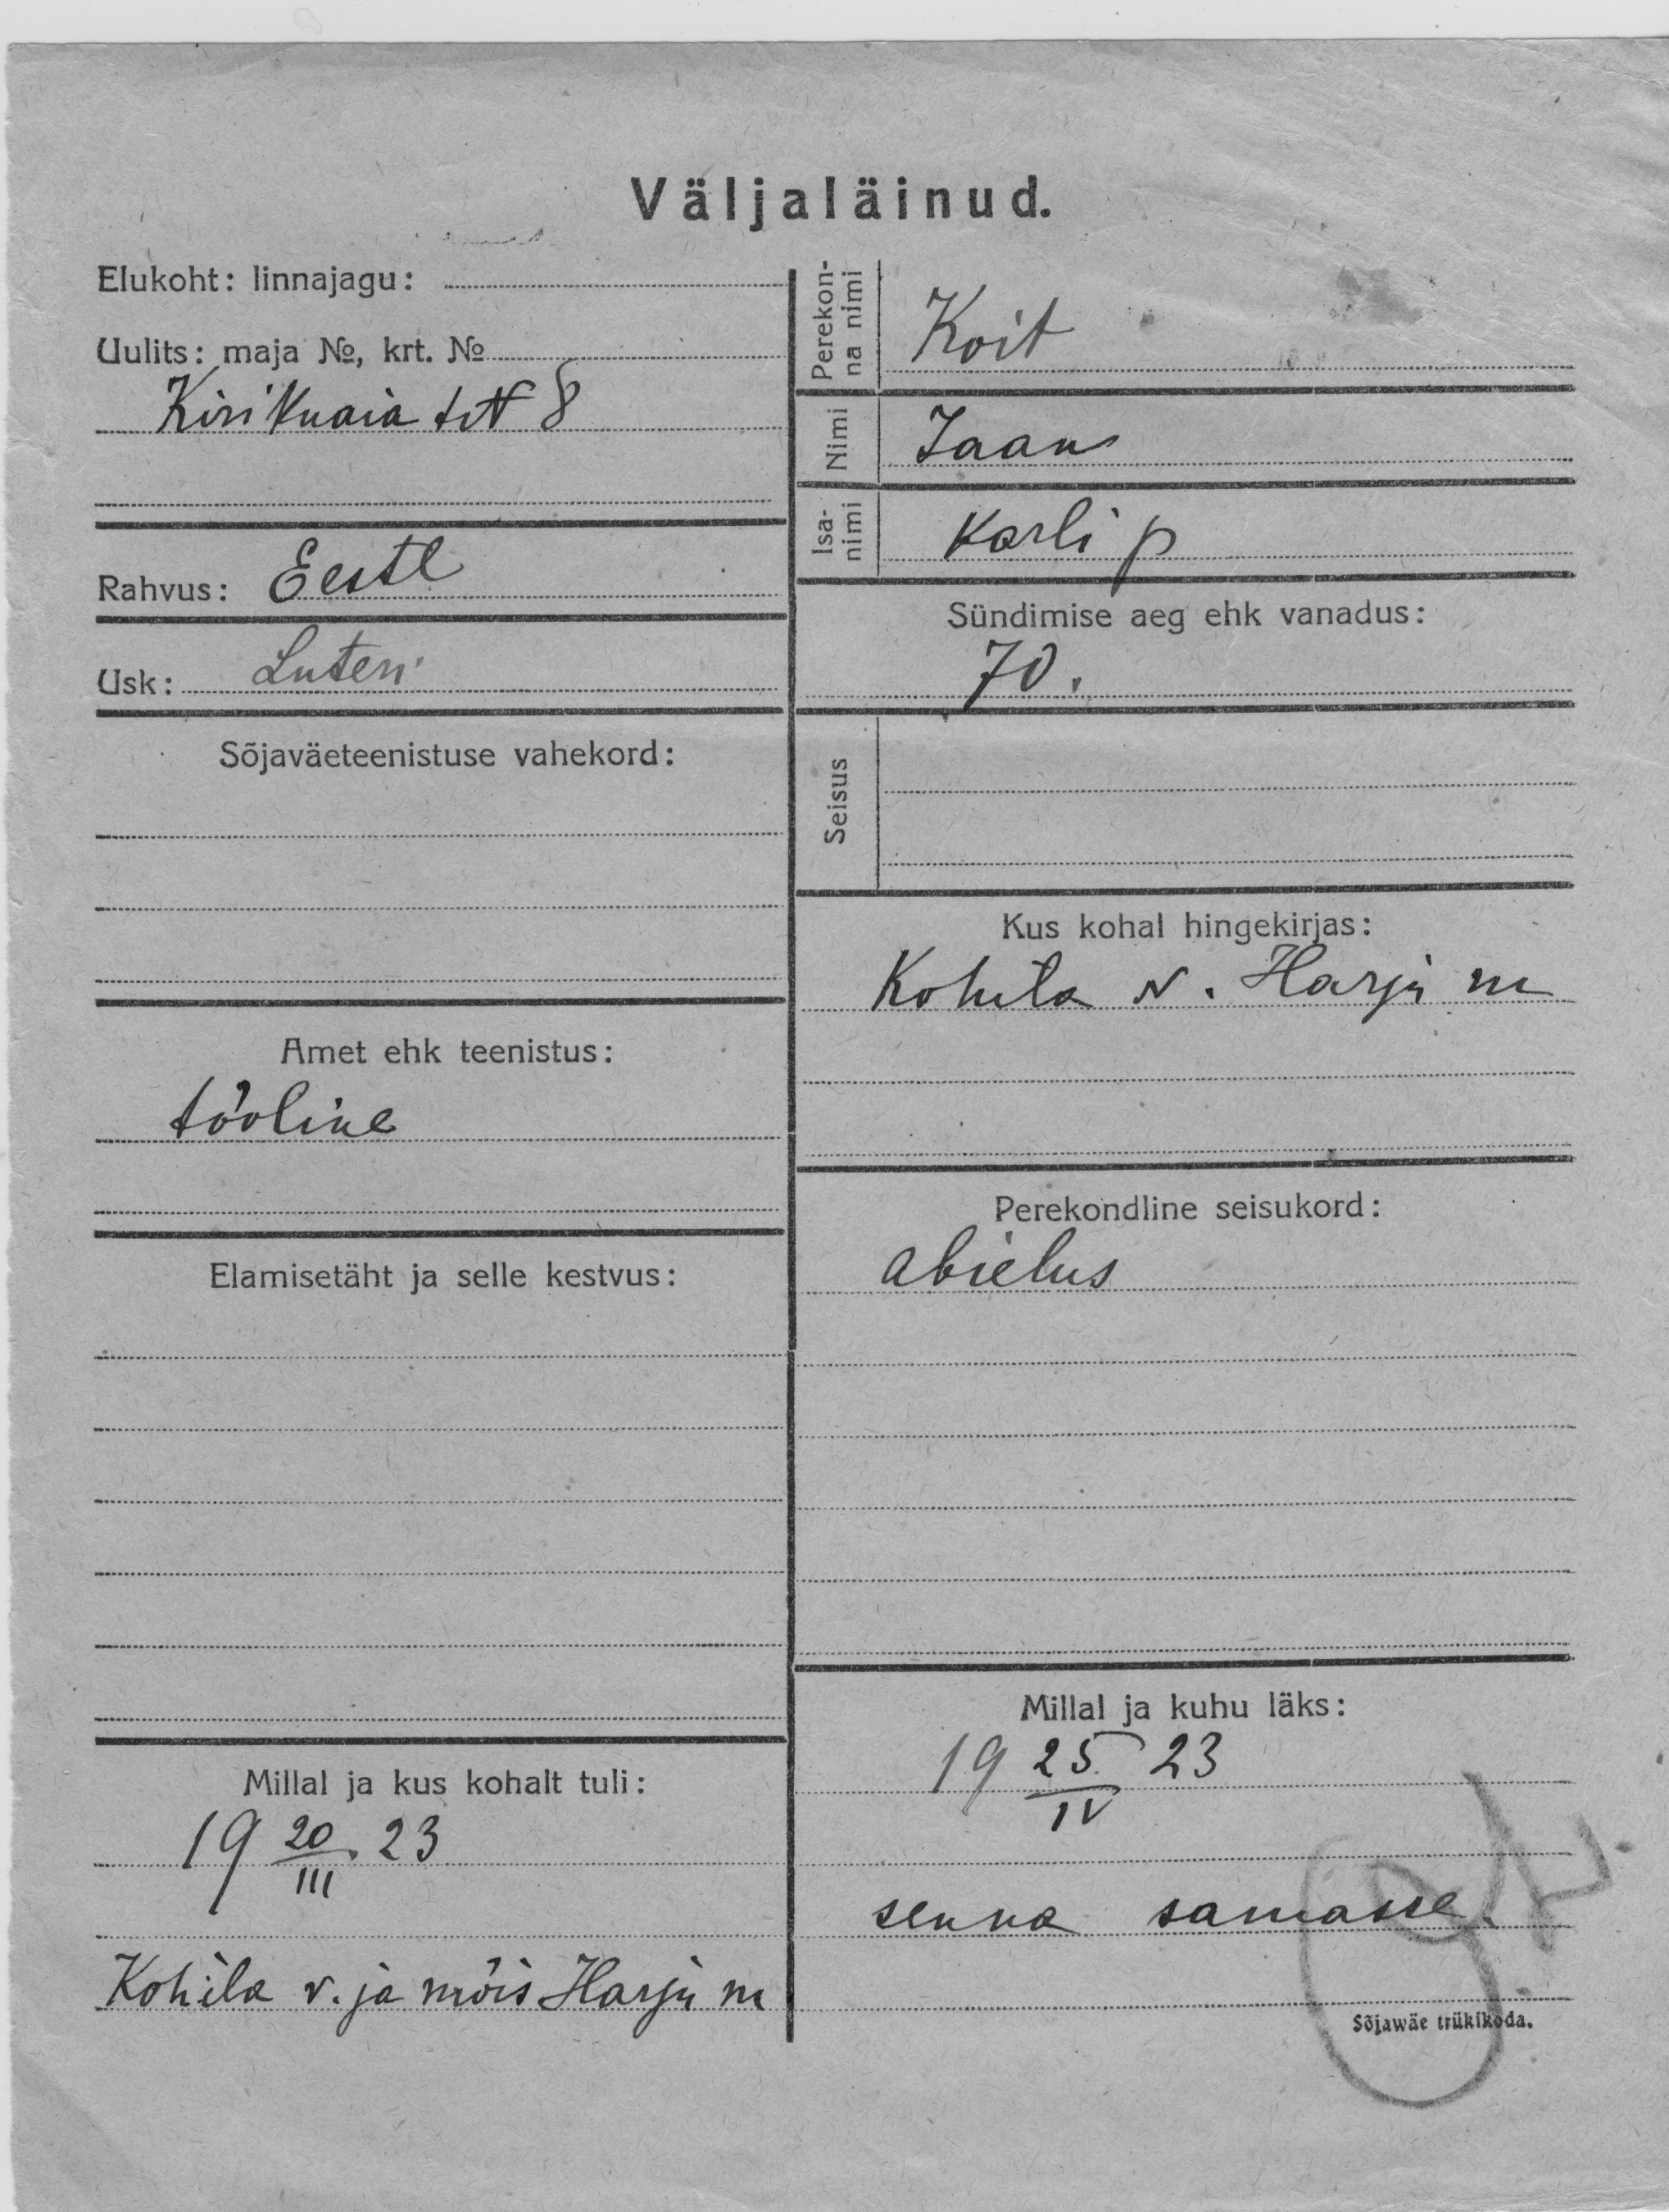 Väljaläinud.
Elukoht: linnajagu:
Uulits: maja №, krt. №
Kirikuaia t N 8
Rahvus: Eestl
Usk: Luteri
Sõjaväeteenistuse vahekord:
Amet ehk teenistus:
tööline
Elamisetäht ja selle kestvus:
Millal ja kus kohalt tuli:
19 20/III. 23
Kohila v. ja mõis Harju m
Perekon-
na nimi
Koit
Nimi
Jaan
Isa-
nimi
Karli p
Sündimise aeg ehk vanadus:
70.
Seisus
Kus kohal hingekirjas:
Kohila v. Harju m
Perekondline seisukord:
abielus
Millal ja kuhu läks:
19 25/IV 23
senna samasse.
Sõjawäe trükikoda.